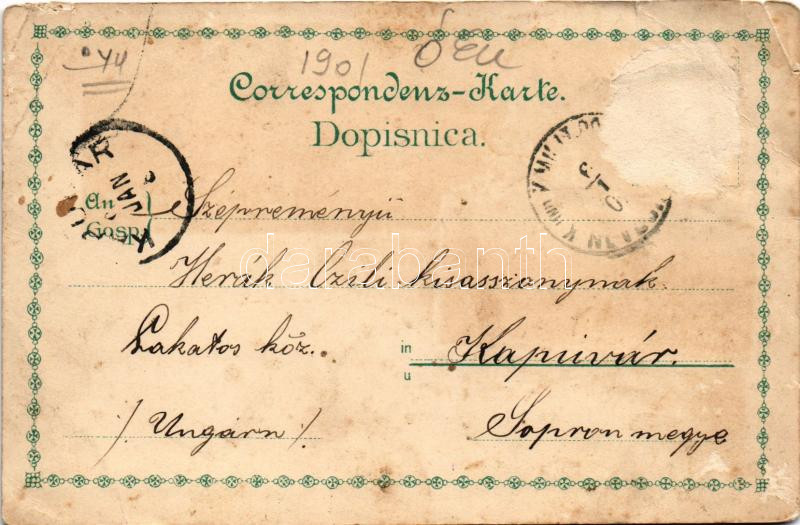 1901
Correspondenz-Karte.
Dopisnica.
An
Gosp.
JAN
Szépreményű
Herák Czili kisasszonynak
Lakatos köz.
in
u
Kapuvár.
/ Ungarn /.
Sopron megye
darabanth